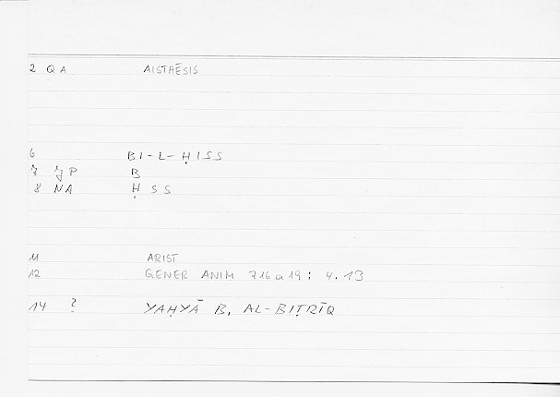 2 QA AISTHĒSIS
6 BI-L-ḤISS
7 JP B
8 NA ḤSS
11 ARIST
12 GENER ANIM 716a19: 4.13
14 ? YAḤYĀ B. AL-BIṬRĪQ